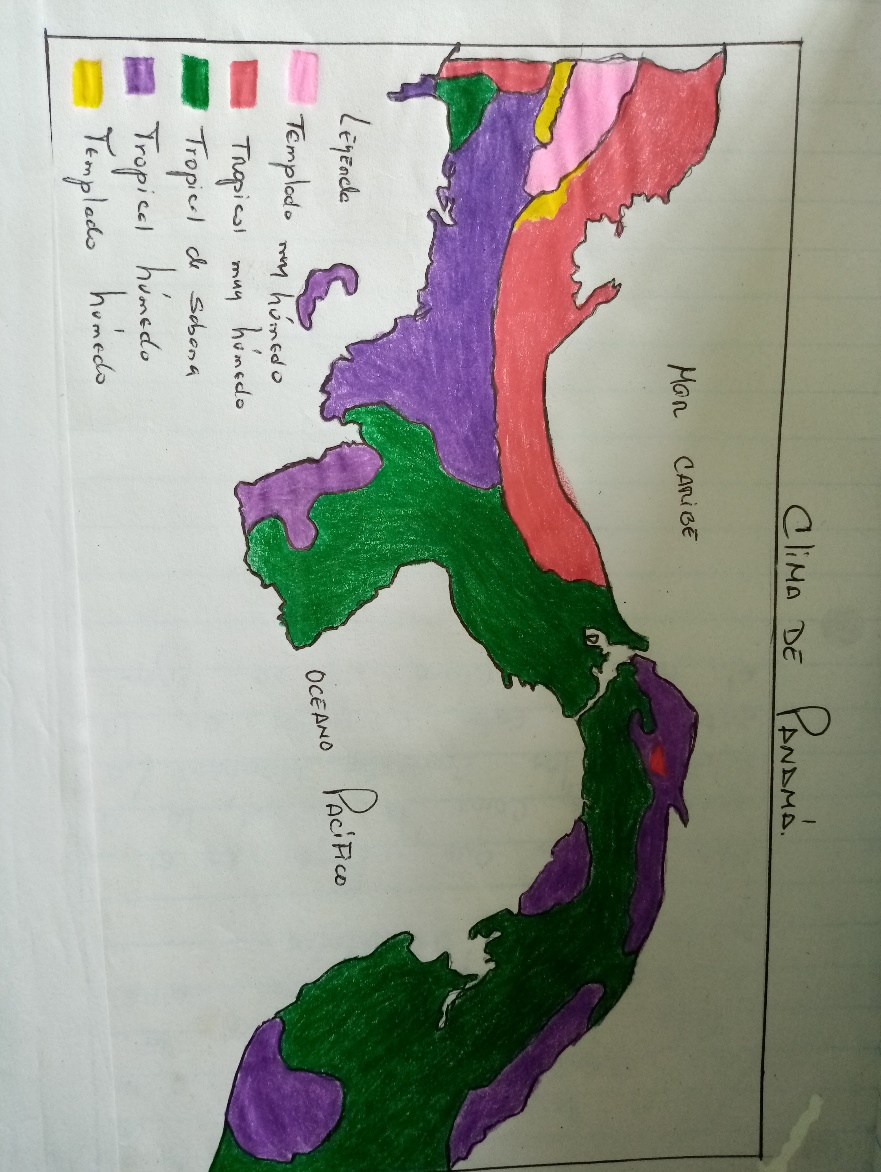 CLIMA DE PANAMÁ.
MAR CARIBE
OCEANO PACÍFICO
Leyenda
Templado muy húmedo
Tropical muy húmedo
Tropical de sabana
Tropical húmedo
Templado húmedo